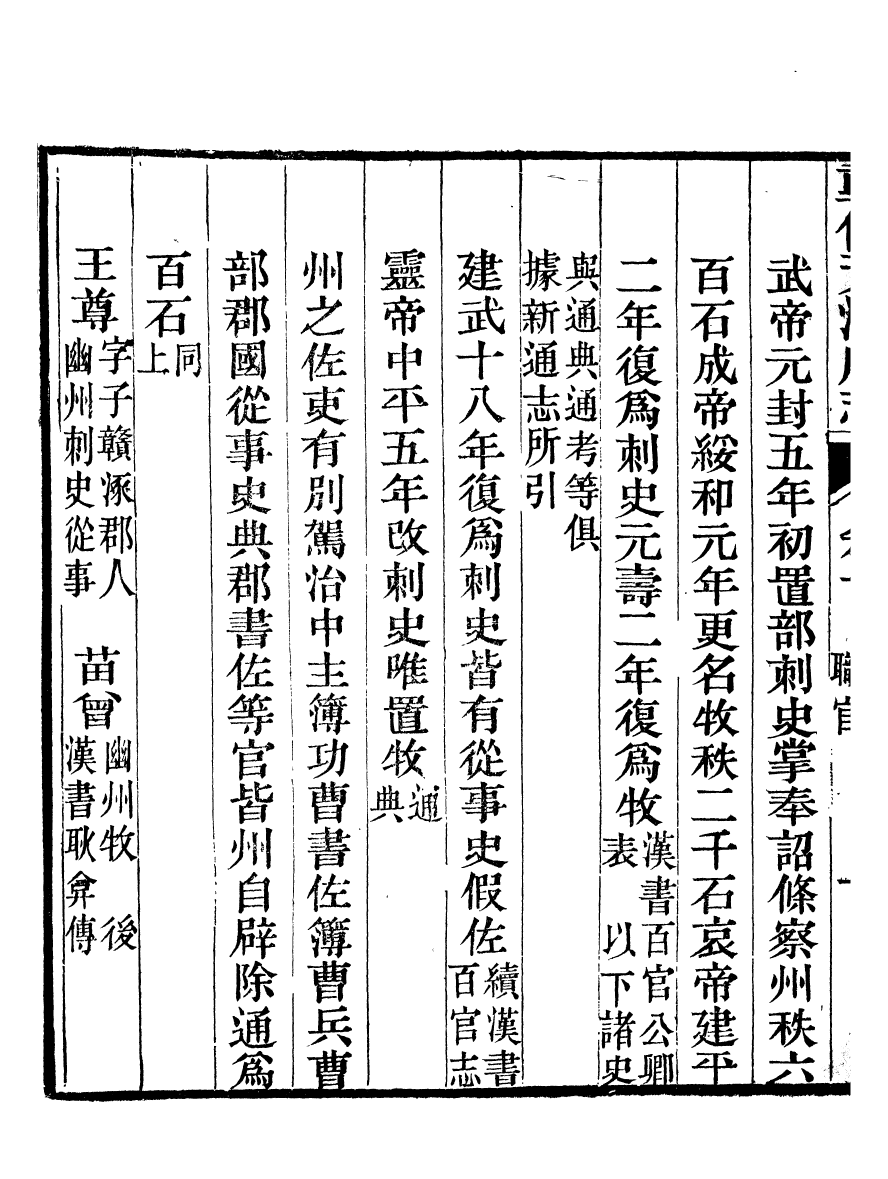 職官
武帝元封五年初置部刺史掌奉詔條察州秩六
百石成帝綏和元年更名牧秩二千石哀帝建平
二年復爲刺史元壽二年復爲牧漢書百官公卿表　以下諸史
與通典通考等俱據新通志所引
建武十八年復爲刺史皆有從事史假佐續漢書百官志
靈帝中平五年改刺史唯置牧通典
州之佐吏有別駕治中主簿功曹書佐簿曹兵曹
部郡國從事史典郡書佐等官皆州自辟除通爲
百石同上
王尊字子贛涿郡人幽州刺史從事　苗曾幽州牧　後漢書耿弇傳